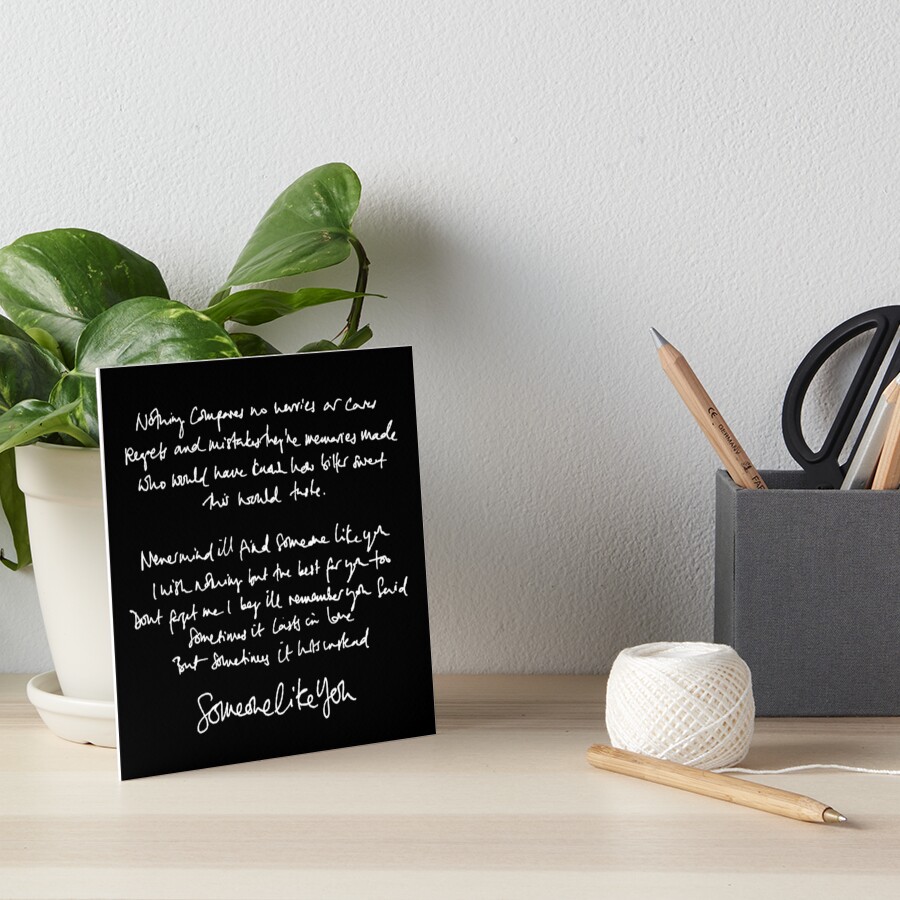 Nothing Compares no worries or cares
Regrets and mistakes they're memories made
Who would have known how bitter sweet
this would taste.
Nevermind ill find someone like you
I wish nothing but the best for you too
Dont forget me I beg ill remember you said
Sometimes it lasts in love
But sometimes it hurts instead
Someone like you
GERMANY
FA